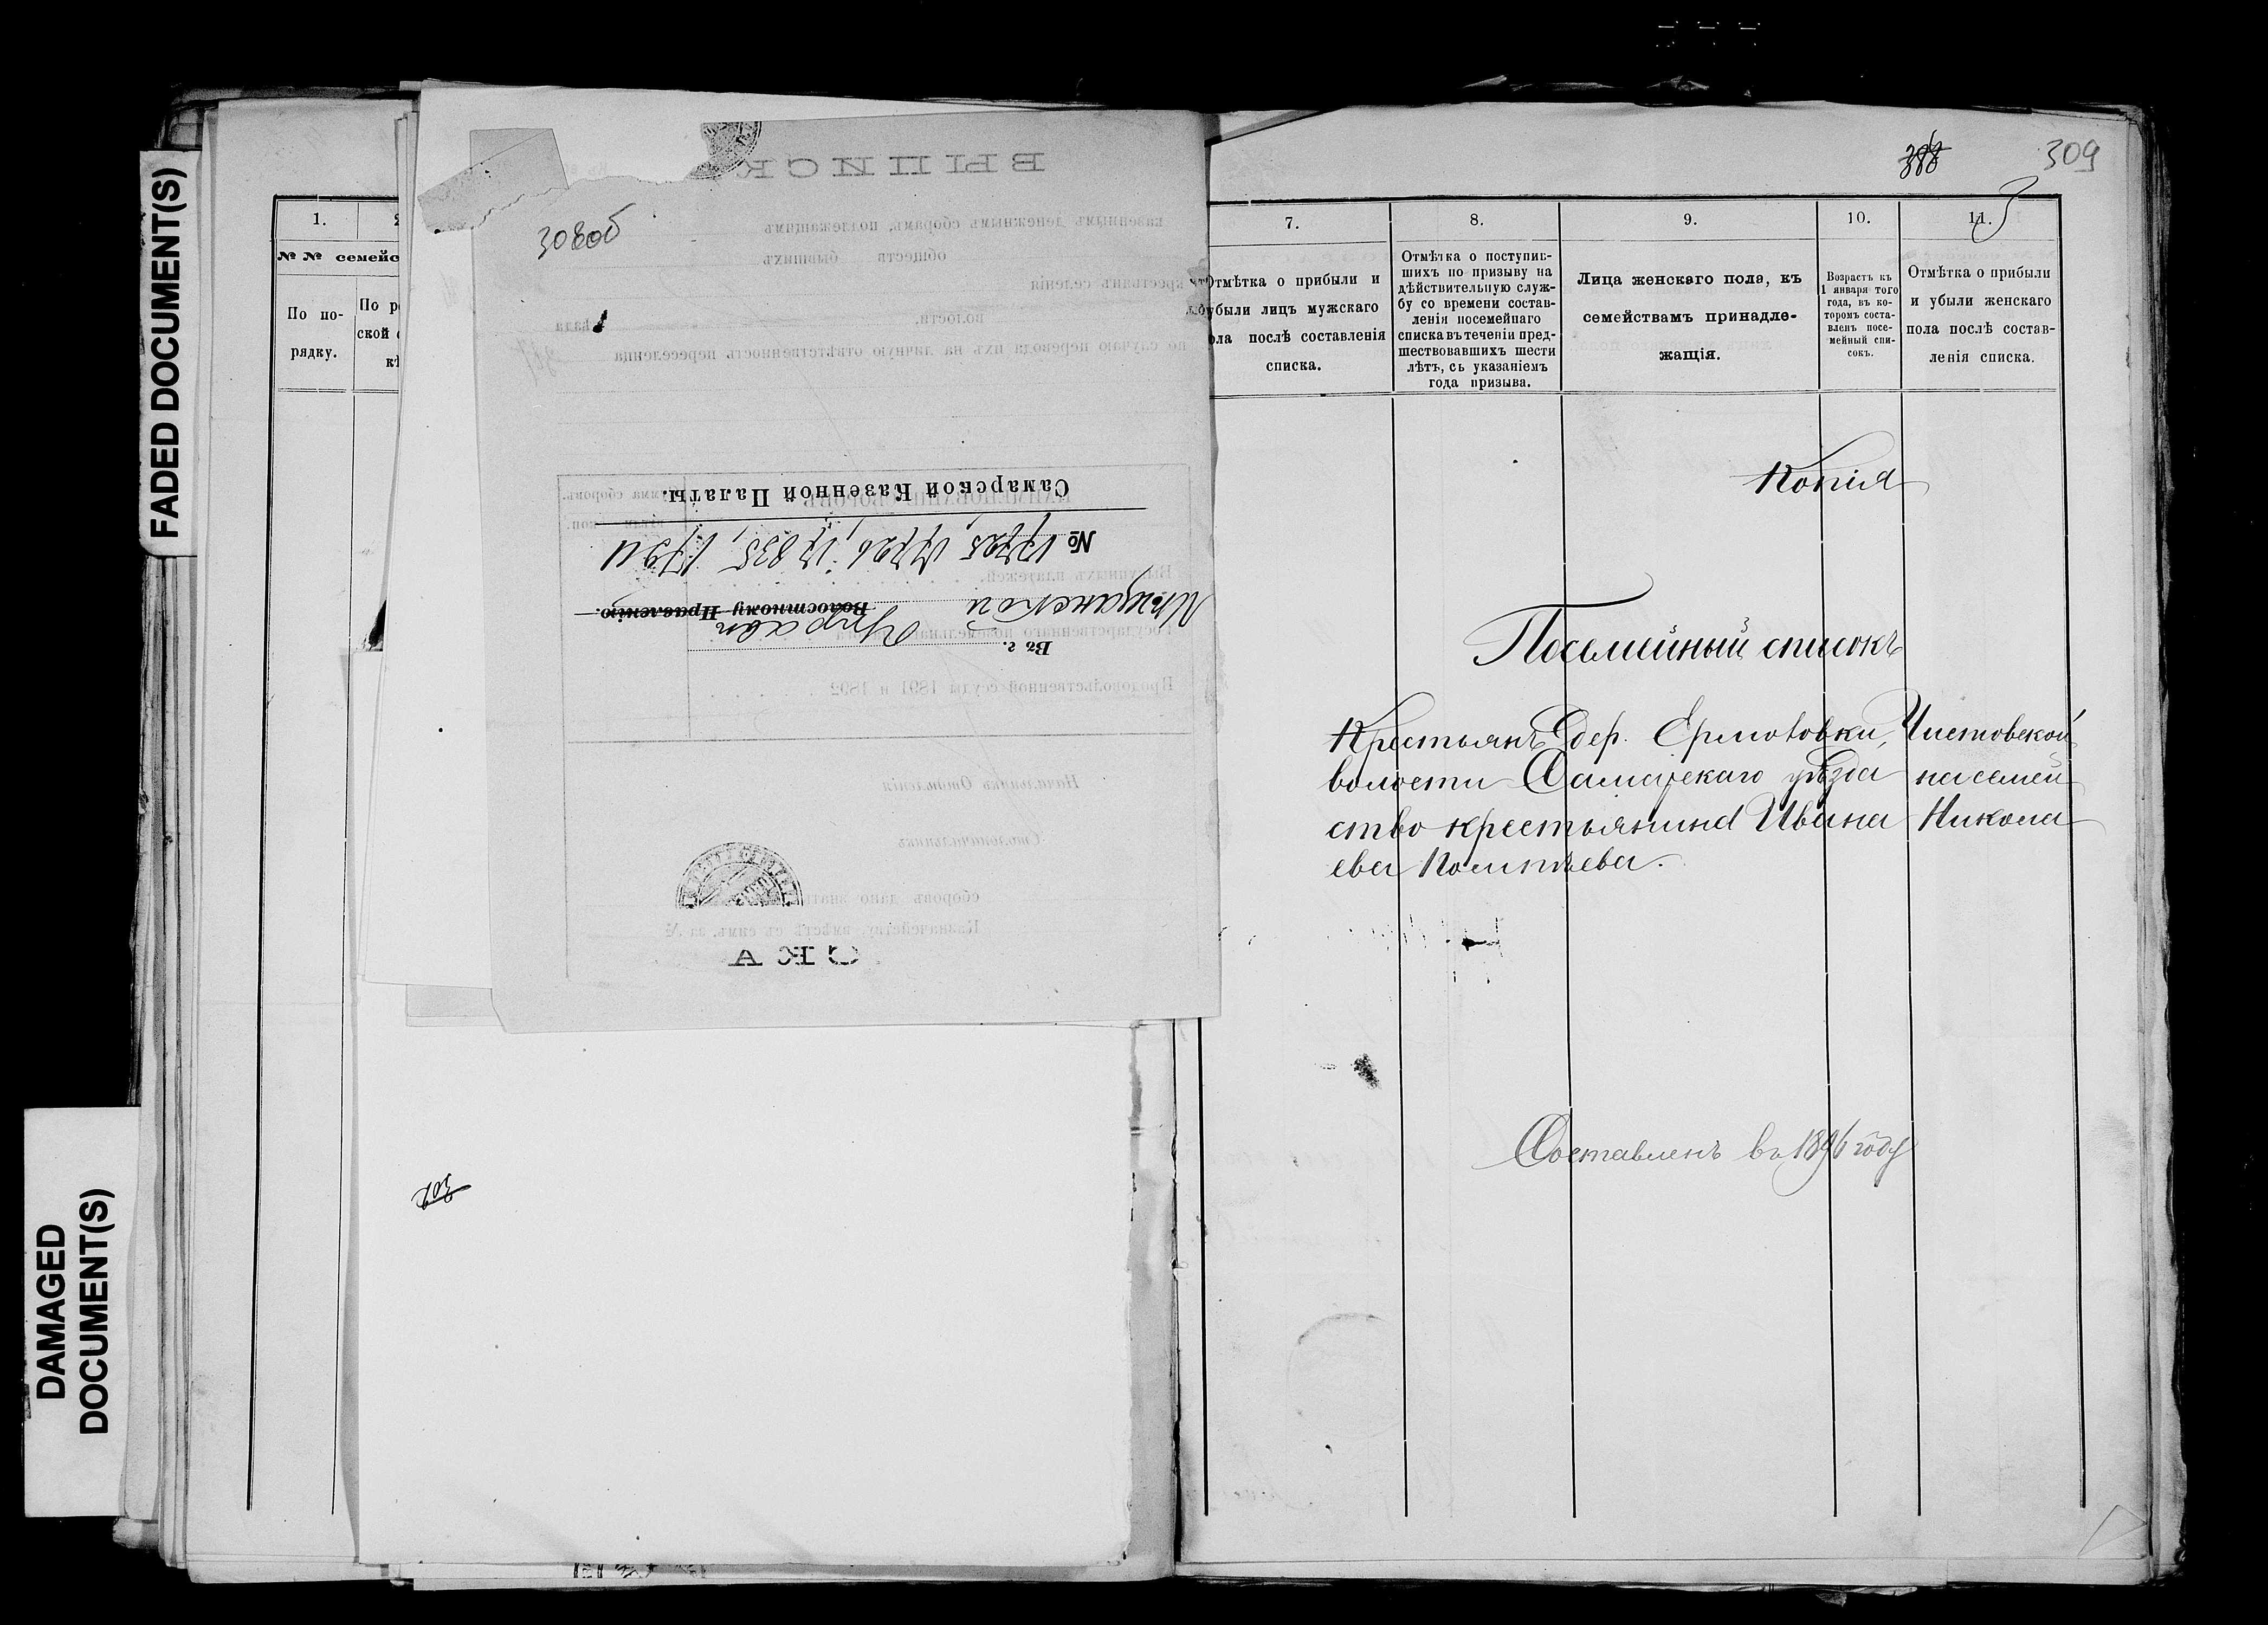 FADED DOCUMENT(S)
DAMAGED
DOCUMENT(S)
1.
№ № семейс
По по-
рядку.
По р
ской
кѣ
308об
ВЫПИСК
казеннымъ денежнымъ сборамъ, подлежащимъ
обществ бывшихъ
крестьянъ селенія
волости,
по случаю перевода ихъ на личную отвѣтственность переселенца
Самарской Казенной Палаты.
№ 17725, 17726, 17835, 
Мѣщанской Управ
Волостному Правленію.
Въ г.
Выкупныхъ платежей
Государственнаго поземельна
Продовольственной ссуды 1891 и 1892
Начальникъ Отдѣленія
Столоначальникъ
сборовъ дано знать
Казначейству, вмѣстѣ съ симъ, за №
302
388
309
7.
8.
9.
10.
11.
Отмѣтка о прибыли и
убыли лицъ мужскаго
ола послѣ составленія
списка.
Отмѣтка о поступив-
шихъ по призыву на
дѣйствительную служ-
бу со времени состав-
ленія посемейнаго
списка въ теченіи пред-
шествовавшихъ шести
лѣтъ, съ указаніемъ
года призыва.
Лица женскаго пола, къ
семействамъ принадле-
жащія.
Возрастъ къ
1 января того
года, въ ко-
торомъ соста-
вленъ посе-
мейный спи-
сокъ.
Отмѣтка о прибыли
и убыли женскаго
пола послѣ состав-
ленія списка.
Копія
Посемейный списокъ
Крестьянъ дер. Ермоловки, Чистовской
волости Самарскаго уѣзда на семей
ство крестьянина Ивана Никола
ева
Составленъ въ 1896 году